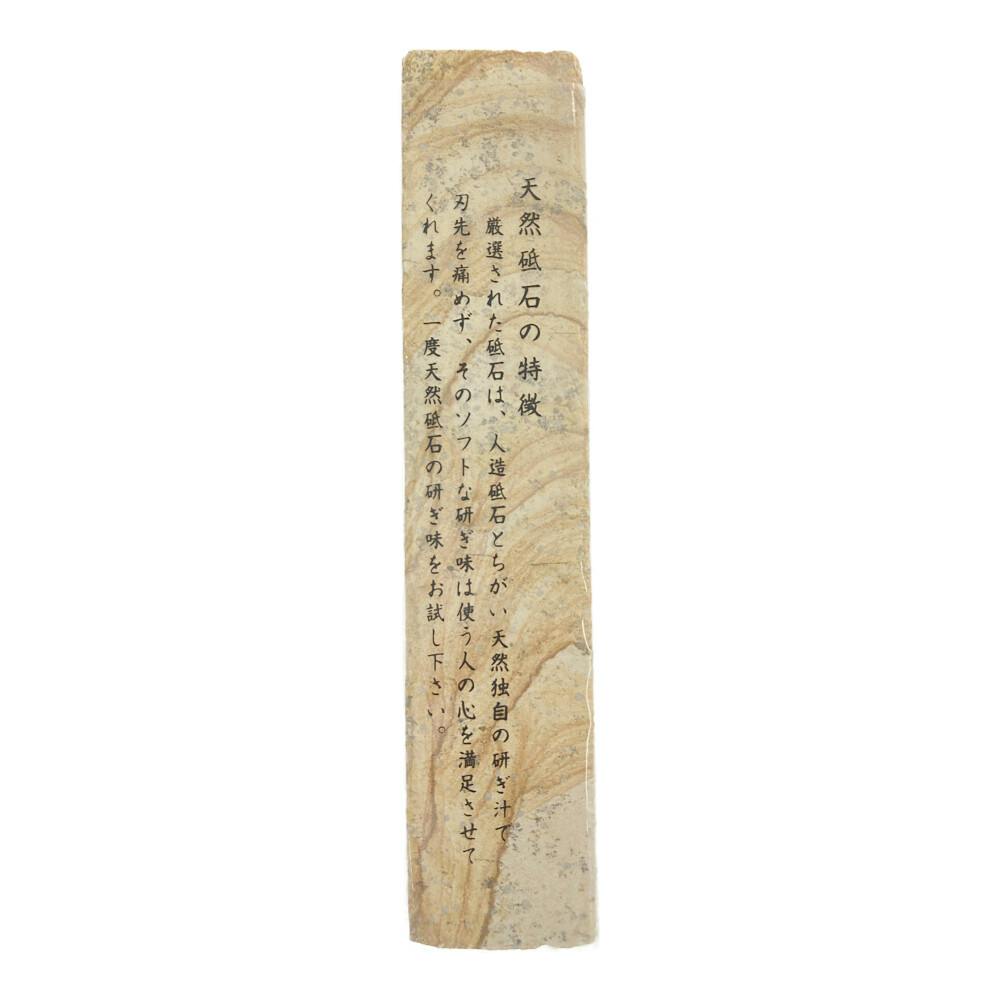 天然砥石の特徴
厳選された砥石は、人造砥石とちがい天然独自の研ぎ汁で
刃先を痛めず、そのソフトな研ぎ味は使う人の心を満足させて
くれます。一度天然砥石の研ぎ味をお試し下さい。